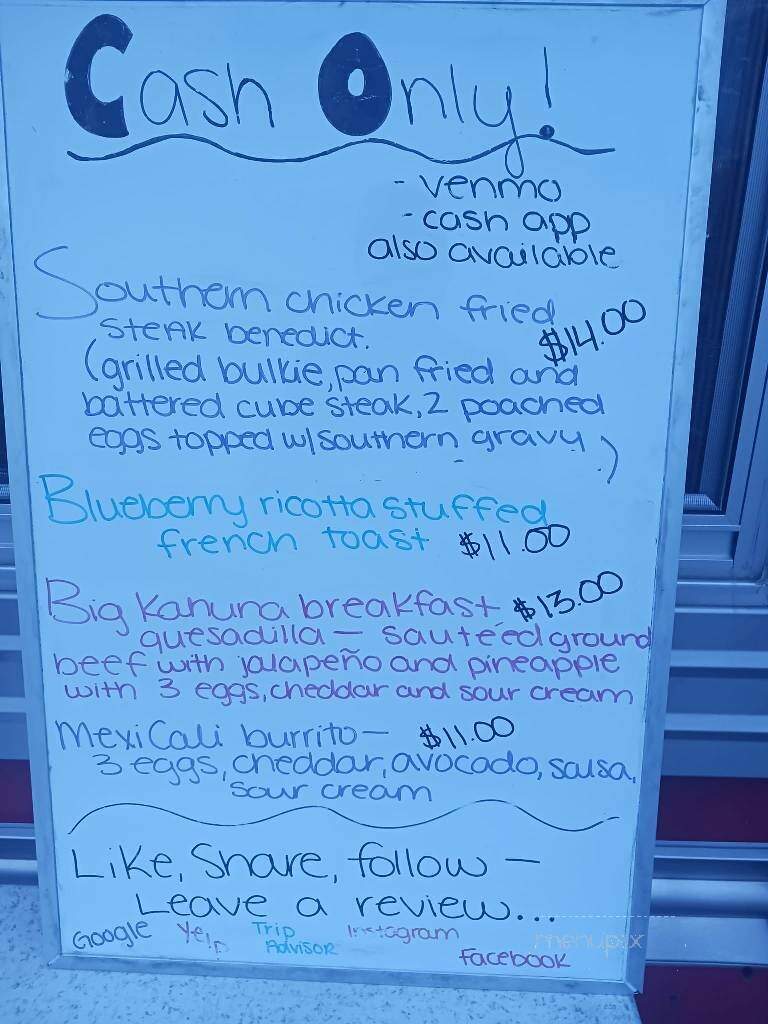 Cash Only!
- venmo
- cash app
also available
Southern chicken fried
steak benedict. $14.00
(grilled bulkie, pan fried and
battered cube steak, 2 poached
eggs topped w/ southern gravy)
Blueberry ricotta stuffed
french toast $11.00
Big Kahuna breakfast $13.00
quesadilla - sautéed ground
beef with jalapeño and pineapple
with 3 eggs, cheddar and sour cream
MexiCali burrito - $11.00
3 eggs, cheddar, avocado, salsa,
sour cream
Like, Share, follow -
Leave a review...
Google Yelp Trip Advisor Instagram
Facebook
menupix